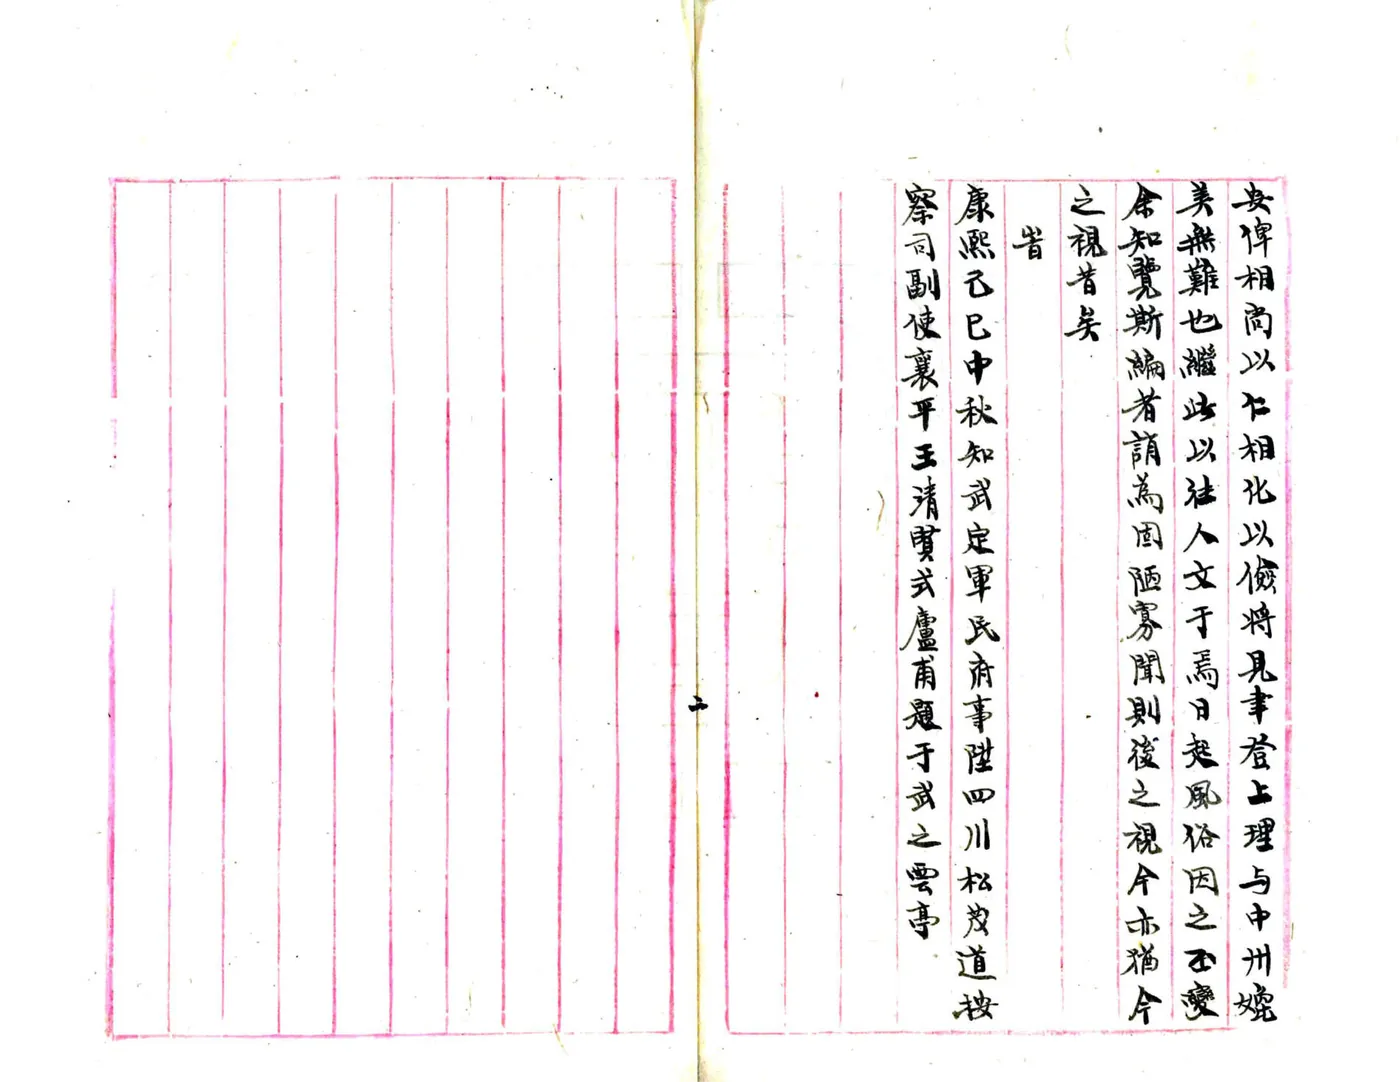 安俾相尚以仁相化以儉將見聿登上理与中州媲
美無難也繼此以往人文于焉日起風俗因之丕變
余知覽斯編者誚為固陋寡聞則後之視今亦猶今
之視昔矣
旹
康熙己巳中秋知武定軍民府事陞四川松茂道按
察司副使襄平王清賢式廬甫題于武之雲亭
二